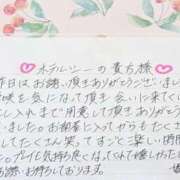 ホテルシーの貴方様
昨日はお誘い頂きありがとうございました
咲を気になって頂き会いに来てく
し入れまで用意して頂きありがとう
ました。お部屋に入ってからもたくさ
してたくさん笑ってすごく楽しい時間
プレイも気持ち良くなってくれて嬉しかった
お待ちしております。